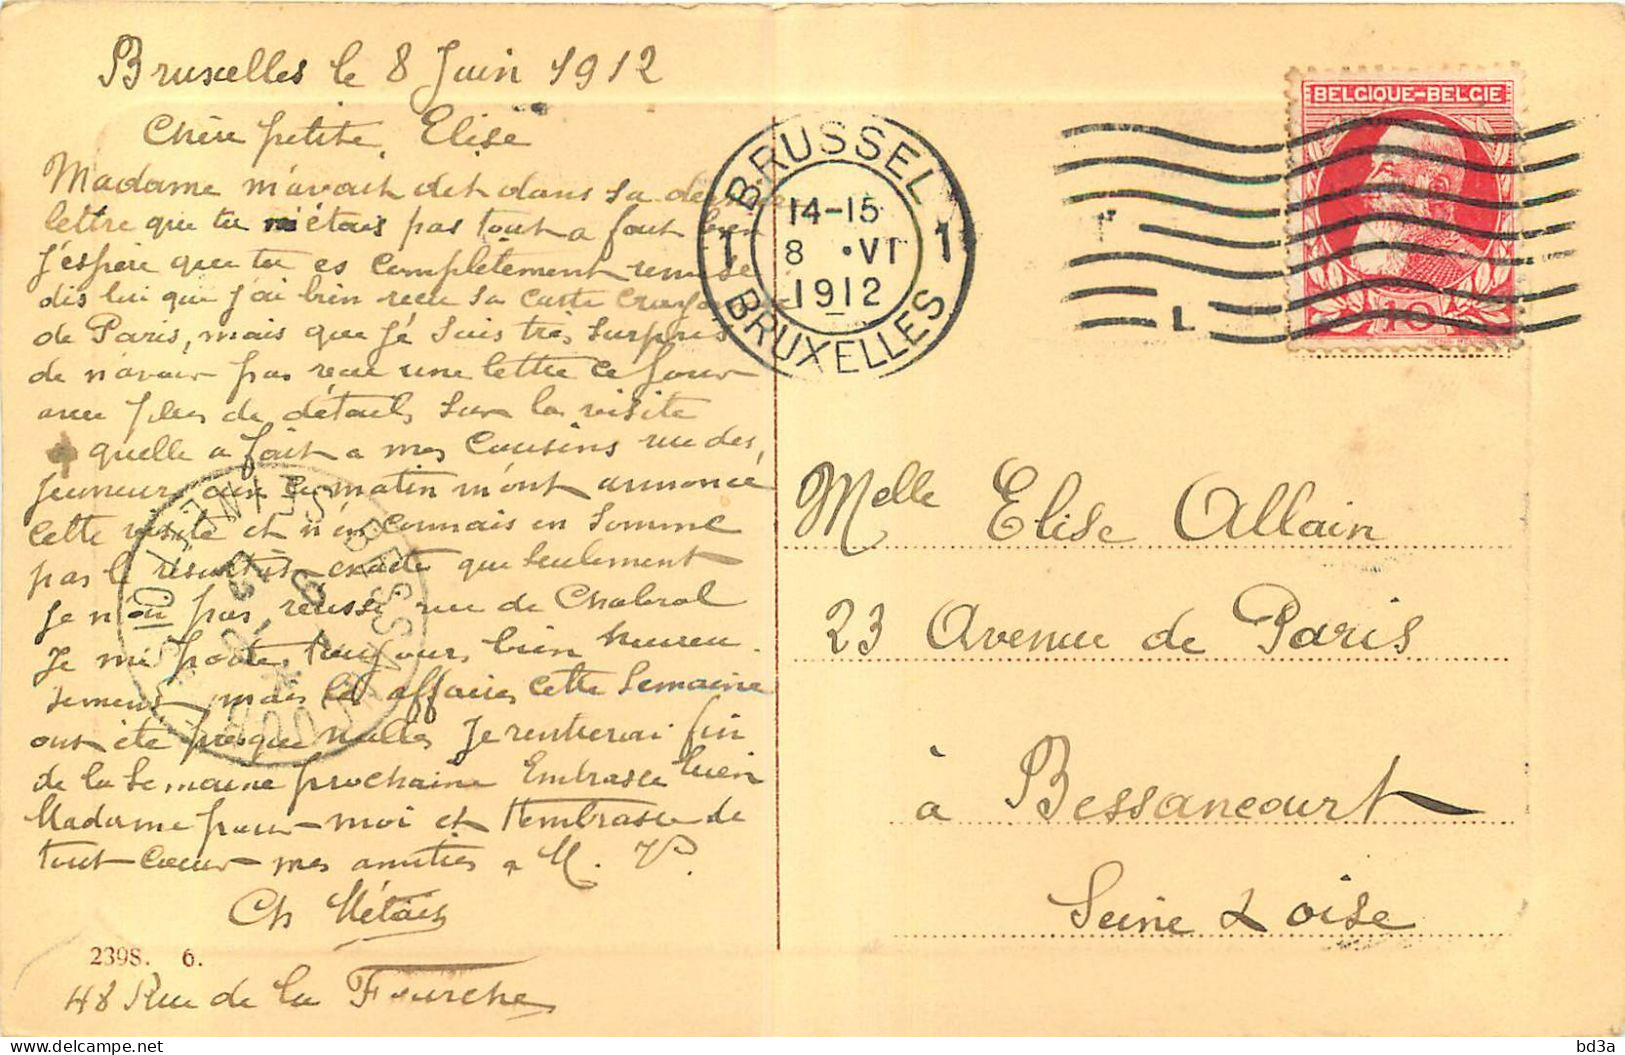 Bruxelles le 8 Juin 1912
Chère petite Elise
Madame m'avait dit dans sa dernière
lettre que tu n'étais pas tout a fait bien
J'espère que tu es complètement remise
dis lui que j'ai bien recu sa carte
de Paris, mais que je suis très surpris
de n'avoir pas recu une lettre ce jour
avec plus de détails sur la visite
quelle a fait a mes Cousins rue des
Jeuneurs, ce matin m'ont annoncé
cette visite et n'en connais en somme
pas le résultat exacte que seulement
Je n'ai pas réussi rue de Chabrol
Je me porte toujours bien heureu
sement, mais les affaires cette semaine
ont été presque nulles Je rentrerai fin
de la semaine prochaine Embrasse bien
Madame pour moi et t'embrasse de
tout coeur mes amitiés a M. V.
Ch Métais
2398. 6.
48 Rue de la Fourche
BRUSSEL
1 1
14-15
8 •VI
1912
BRUXELLES
BELGIQUE-BELGIE
10
L
Melle Elise Allain
23 Avenue de Paris
à Bessancourt
Seine & Oise
BESSANCOURT
SEINE-ET-OISE
bd3a